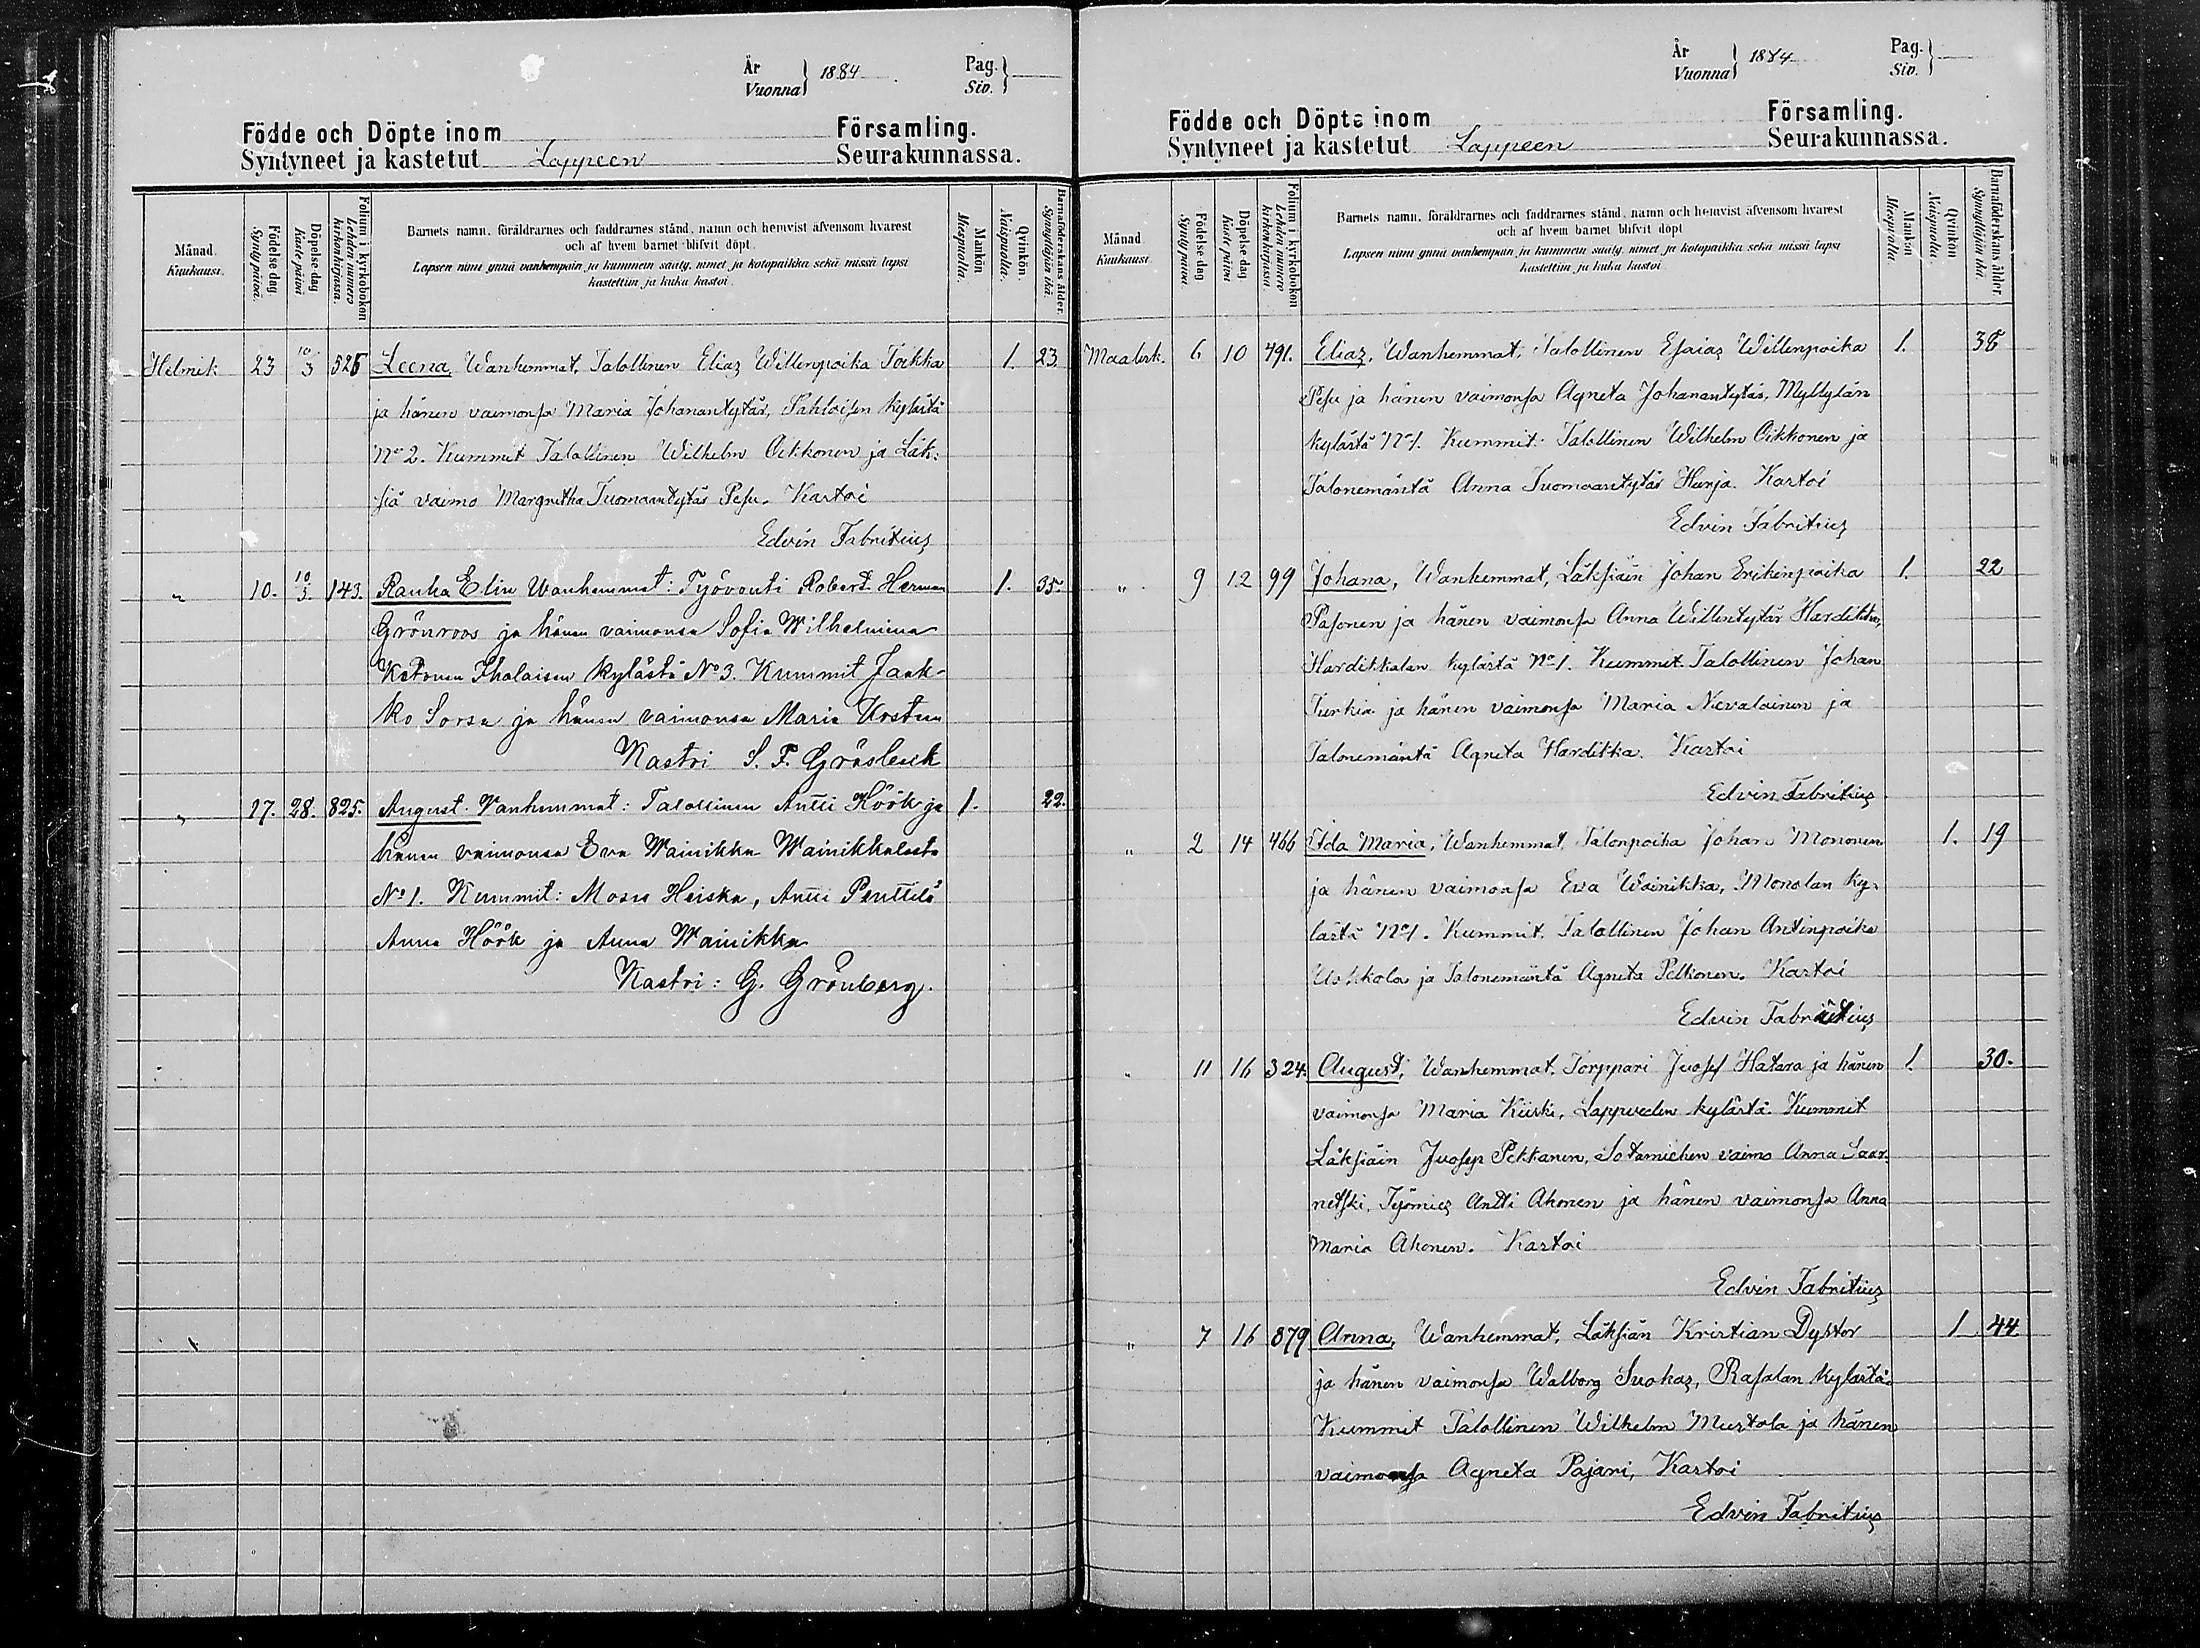 År
Vuonna } 1884
Pag.
Siv. }
Födde och Döpte inom Församling.
Syntyneet ja kastetut Lappeen Seurakunnassa.
Månad. Kuukausi.
Födelse dag. Synty päivä.
Döpelse dag Kaste päivä
Folium i kyrkoboken Lehden numero kirkonkirjassa.
Barnets namn, föräldrarnes och faddrarnes stånd, namn och hemvist äfvensom hvarest
och af hvem barnet blifvit döpt.
Lapsen nimi ynnä vanhempain ja kummein sääty, nimet ja kotopaikka sekä missä lapsi
kastettiin ja kuka kastoi.
Mankön Miespuolia.
Qvinkön. Naispuolia.
Barnaföderskans ålder. Synnyttäjän ikä.
Helmik 23 10/3 525 Leena, Wanhemmat, Talollinen Elias Willenpoika Toikka 1. 23.
ja hänen vaimonsa Maria Johanantytär, Pahloisen kylästä
No 2. Kummit Talollinen Wilhelm Oikkonen ja Läk:
siä vaimo Margretha Tuomaantytär Pesu. Kastoi
Edvin Fabritius
" 10. 10/3. 143. Rauha Elin Wanhemmat: Työvouti Robert Herman 1. 35.
Grönroos ja hänen vaimonsa Sofia Wilhelmina
Ketonen Ihalaisen kylästä No 3. Kummit Jaak-
ko Sorsa ja hänen vaimonsa Maria
Kastoi S. F. Gröslenk
" 17. 28. 825. August. Vanhemmat: Talollinen Antti Höök ja 1. 22.
hänen vaimonsa Eva Wainikka Wainikkalasta
No 1. Kummit: Moses Heiska, Antti Penttilä
Anna Höök ja Anna Wainikka
Kastoi: G. Grönberg.
År
Vuonna } 1884
Pag.
Siv. }
Födde och Döpta inom Församling.
Syntyneet ja kastetut Lappeen Seurakunnassa.
Månad. Kuukausi
Födelse dag Synty päivä.
Döpelse dag. Kaste päivä
Folium i kyrkoboken Lehden numero kirkonkirjassa.
Barnets namn, föräldrarnes och faddrarnes stånd, namn och hemvist äfvensom hvarest
och af hvem barnet blifvit döpt
Lapsen nimi ynnä vanhempain ja kummein sääty, nimet ja kotopaikka sekä missä lapsi
kastettiin ja kuka kastoi.
Mankön Miespuolia
Qvinkön Naispuolia
Barnaföderskans ålder. Synnyttäjän ikä.
Maalisk. 6 10 491. Elias, Wanhemmat, Talollinen Esaias Willenpoika 1. 38
Pesu ja hänen vaimonsa Agneta Johanantytär, Myllylän
kylästä No 1. Kummit: Talollinen Wilhelm Oikkonen ja
Talonemäntä Anna Tuomaantytär Hurja. Kastoi
Edvin Fabritius
" 9 12 99 Johana, Wanhemmat, Läksiäin Johan Erikinpoika 1. 22
Pasonen ja hänen vaimonsa Anna Willentytär Hardikka,
Hardikkalan kylästä No 1. Kummit Talollinen Johan
Turkia ja hänen vaimonsa Maria Nevalainen ja
Talonemäntä Agneta Hardikka. Kastoi
Edvin Fabritius
" 2 14 466 Ida Maria, Wanhemmat, Talonpoika Johan Mononen 1. 19
ja hänen vaimonsa Eva Wainikka, Monolan ky-
lästä No 1. Kummit. Talollinen Johan Antinpoika
Uskkola ja Talonemäntä Agneta Pelkonen. Kastoi
Edvin Fabritius
" 11 16 324. August, Wanhemmat. Torppari Juosef Hatara ja hänen 1. 30.
vaimonsa Maria Kiiski, Lappveden kylästä. Kummit
Läksiäin Juosep Pekkanen, Sotamiehen vaimo Anna Saar-
netski, Työmies Antti Ahonen ja hänen vaimonsa Anna
Maria Ahonen. Kastoi
Edvin Fabritius
" 7 16 879 Anna, Wanhemmat, Läksiän Kristian Dyster 1 44
ja hänen vaimonsa Walborg Suokas, Rasalan kylästä.
Kummit Talollinen Wilhelm Mustola ja hänen
vaimonsa Agneta Pajari, Kastoi
Edvin Fabritius